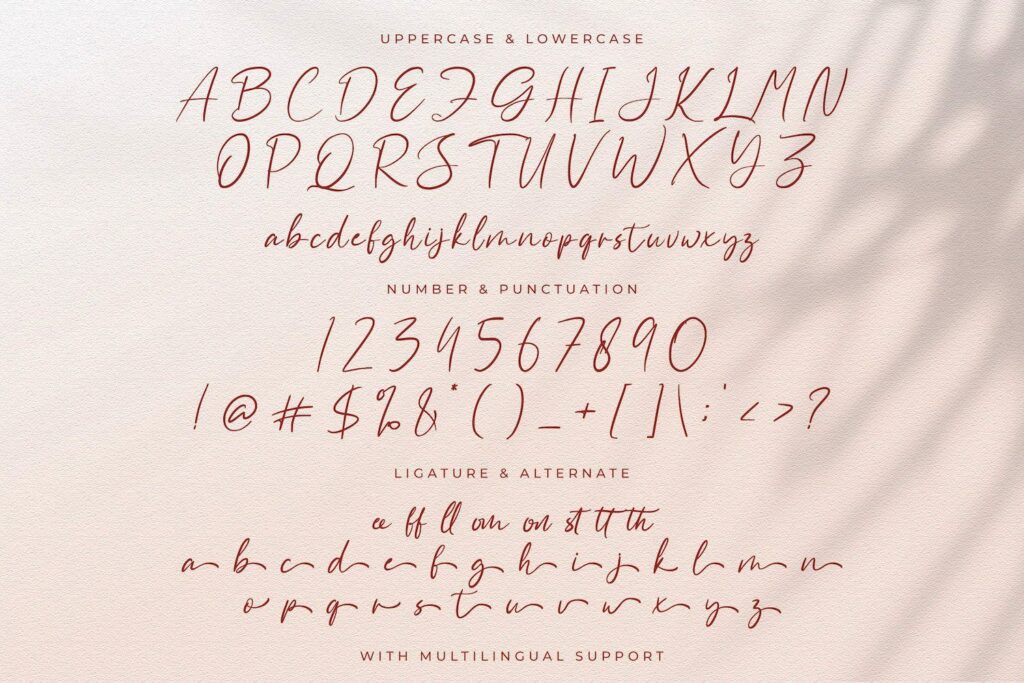 UPPERCASE & LOWERCASE
ABCDEFGHIJKLMN
OPQRSTUVWXYZ
abcdefghijklmnopqrstuvwxyz
NUMBER & PUNCTUATION
1234567890
!@#$%&*()_+[]\;'<>?
LIGATURE & ALTERNATE
ee ff ll om on st tt th
a b c d e f g h i j k l m n
o p q r s t u v w x y z
WITH MULTILINGUAL SUPPORT